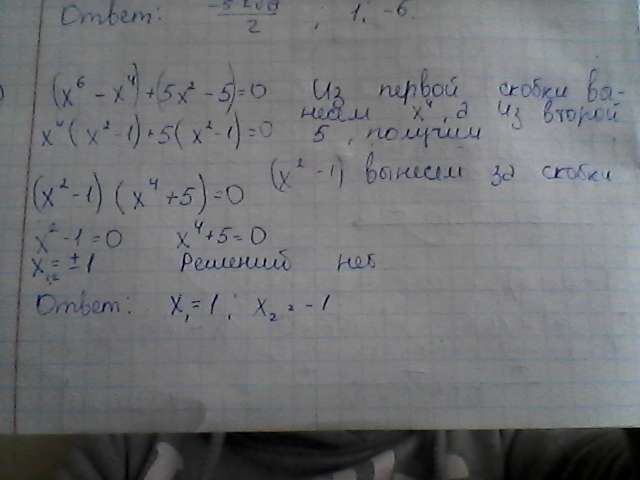 Ответ: ; 1; -6.
(x⁶ - x⁴) + (5x² - 5) = 0 Из первой скобки вы-
несем x⁴, а из второй
x⁴(x² - 1) + 5(x² - 1) = 0 5, получим
(x² - 1)(x⁴ + 5) = 0 (x² - 1) вынесем за скобки
x² - 1 = 0 x⁴ + 5 = 0
x₁,₂ = ± 1 Решений нет
Ответ: x₁ = 1; x₂ = -1